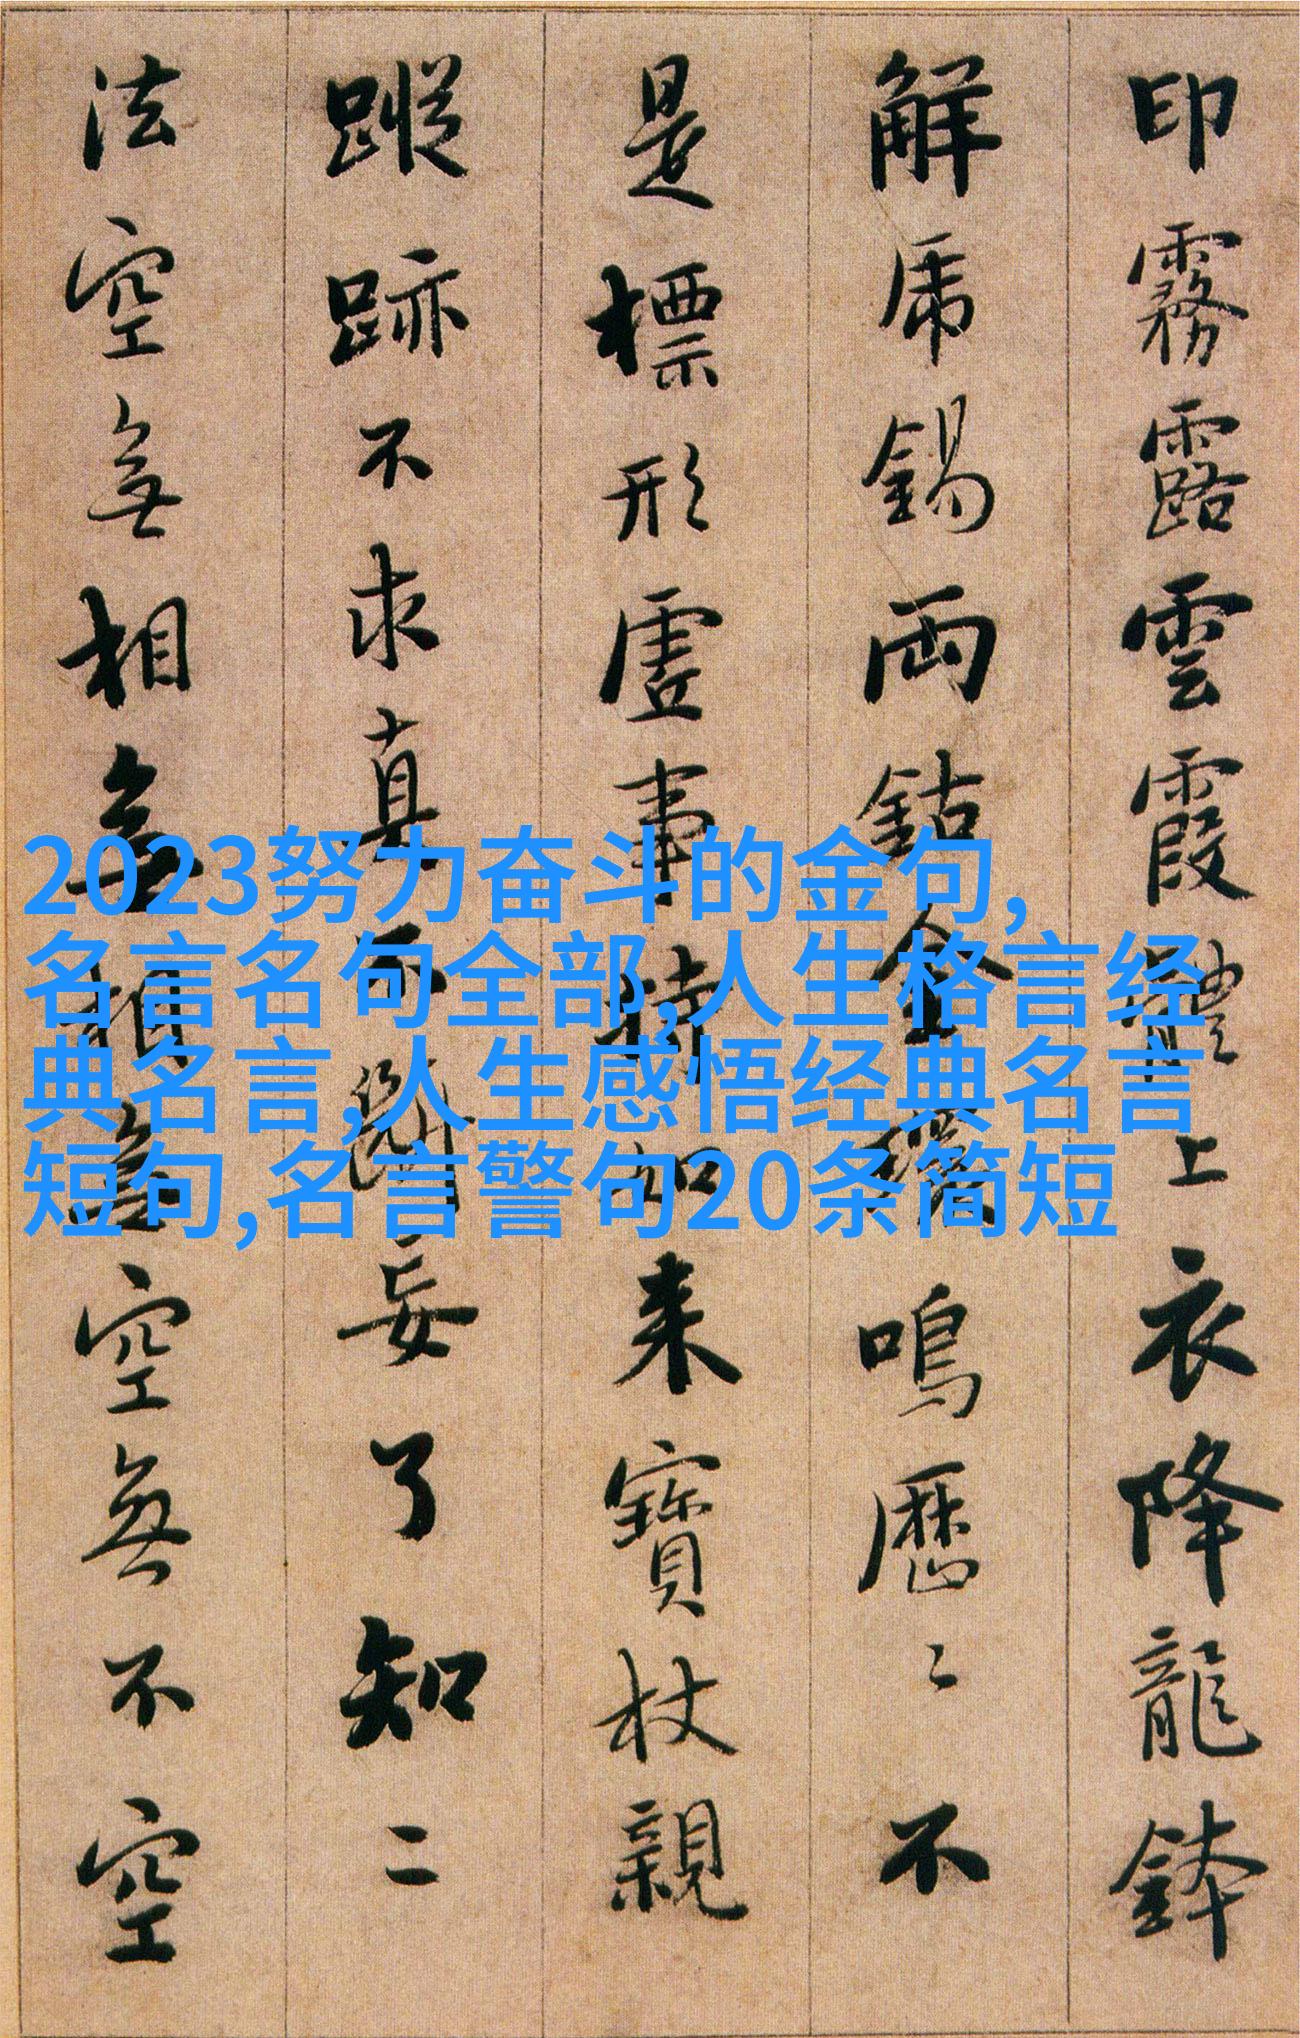 印霧露雲霞體上衣降龍鉢
解虎錫兩鈷金環鳴歷〻不
是標形虛事持如來寶杖親
蹤跡不求真不斷妄了知二
法空無相無相無空無不空
2023努力奋斗的金句,
名言名句全部,人生格言经
典名言,人生感悟经典名言
短句,名言警句20条简短